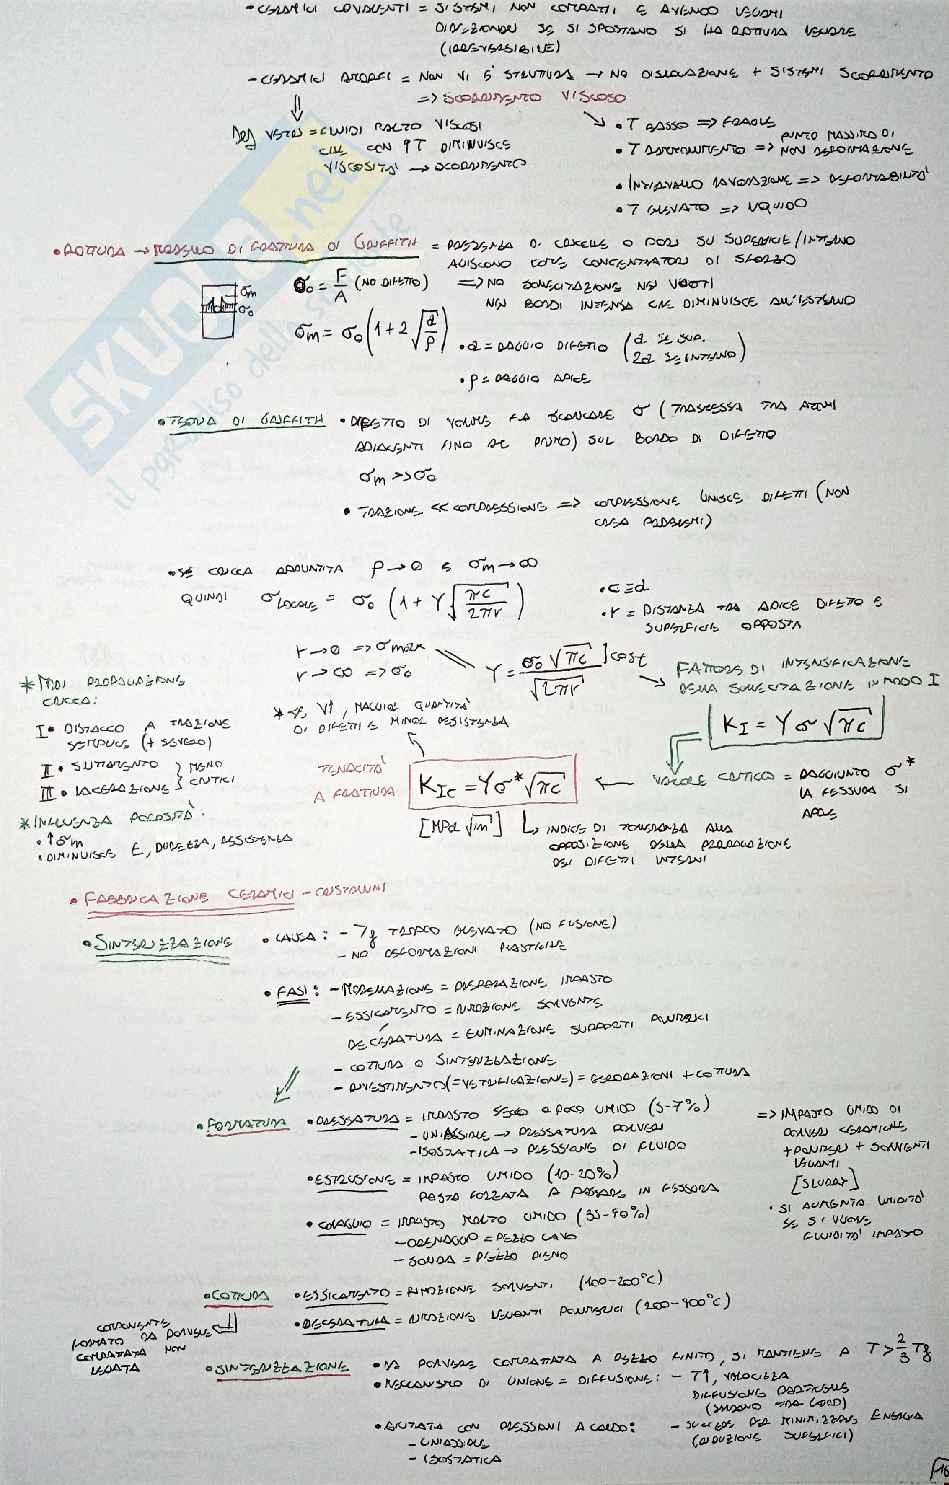 - CERAMICI COVALENTI = SISTEMI NON COMPATTI E AVENDO LEGAMI
DIREZIONALI SE SI SPOSTANO SI HA ROTTURA LEGAME
(IRREVERSIBILE)
- CERAMICI AMORFI = NON VI È STRUTTURA → NO DISLOCAZIONE + SISTEMI SCORRIMENTO
=> SCORRIMENTO VISCOSO
Def VETRI = FLUIDI MOLTO VISCOSI
CHE CON ↑T DIMINUISCE
VISCOSITÀ → SCORRIMENTO
• T BASSO => FRAGILE
• T => PUNTO MASSIMO DI
NON DEFORMAZIONE
• INTERVALLO LAVORAZIONE => DEFORMABILITÀ
• T ELEVATO => LIQUIDO
• ROTTURA → MODELLO DI FRATTURA DI GRIFFITH = PRESENZA DI CRICCHE O PORI SU SUPERFICIE/INTERNO
AGISCONO COME CONCENTRATORI DI SFORZO
σo = F/A (NO DIFETTO) => NO SOLLECITAZIONE NEI VUOTI
NEI BORDI INTENSA CHE DIMINUISCE ALL'ESTERNO
σm
σo
σm = σo (1 + 2 √(a/ρ))
• a = RAGGIO DIFETTO (a SE SUP.
2a SE INTERNO)
• ρ = RAGGIO APICE
• TEORIA DI GRIFFITH • DIFETTO DI VOLUME FA SCARICARE σ (TRASMESSA TRA ATOMI
ADIACENTI FINO AL PRIMO) SUL BORDO DI DIFETTO
σm >> σo
• TRAZIONE << COMPRESSIONE => COMPRESSIONE UNISCE DIFETTI (NON
CREA PROBLEMI)
• SE CRICCA APPUNTITA ρ → 0 E σm → ∞
QUINDI σLOCALE = σo (1 + Y √(πc/2πr))
• c ≡ a
• r = DISTANZA TRA APICE DIFETTO E
SUPERFICIE OPPOSTA
r → 0 => σmax
r → ∞ => σo
Y = σo √πc / √2πr ] cost
→ FATTORE DI INTENSIFICAZIONE
DELLA SOLLECITAZIONE IN MODO I
KI = Y σ √πc
* MODI PROPAGAZIONE
CRICCA:
I • DISTACCO A TRAZIONE
SEMPLICE (+ SEVERO)
II • SLITTAMENTO
III • LACERAZIONE } MENO
CRITICI
* SE V↑, MAGGIOR QUANTITÀ
DI DIFETTI E MINOR RESISTENZA
TENACITÀ
A FRATTURA
KIC = Y σ* √πc
[MPa √m]
VALORE CRITICO = RAGGIUNTO σ*
LA FESSURA SI
APRE
↳ INDICE DI TOLLERANZA ALLA
OPPOSIZIONE DELLA PROPAGAZIONE
DEI DIFETTI INTERNI
* INFLUENZA POROSITÀ:
• ↑ σm
• DIMINUISCE E, DUREZZA, RESISTENZA
• FABBRICAZIONE CERAMICI - CRISTALLINI
• SINTERIZZAZIONE • CAUSA: - Tf TROPPO ELEVATO (NO FUSIONE)
- NO DEFORMAZIONI PLASTICHE
• FASI: - MODELLAZIONE = PREPARAZIONE IMPASTO
- ESSICAMENTO = RIMOZIONE SOLVENTE
DECERATURA = ELIMINAZIONE SUPPORTI POLIMERICI
- COTTURA O SINTERIZZAZIONE
- RIVESTIMENTO (= VETRIFICAZIONE) = DECORAZIONI + COTTURA
• FORMATURA • PRESSATURA = IMPASTO SECCO O POCO UMIDO (5-7%)
- UNIASSIALE → PRESSATURA POLVERI
- ISOSTATICA → PRESSIONE DI FLUIDO
• ESTRUSIONE = IMPASTO UMIDO (10-20%)
PASTA FORZATA A PASSARE IN FESSURA
• COLAGGIO = IMPASTO MOLTO UMIDO (35-40%)
- DRENAGGIO = PEZZO CAVO
- SONDA = PEZZO PIENO
=> IMPASTO UMIDO DI
POLVERI CERAMICHE
+ POLIMERI + SOLVENTI
LEGANTI
[SLURRY]
• SI AUMENTA UMIDITÀ
SE SI VUOLE
FLUIDITÀ IMPASTO
• COTTURA • ESSICAMENTO = RIMOZIONE SOLVENTI (100-200°C)
• DECERATURA = RIMOZIONE LEGANTI POLIMERICI (200-400°C)
COMPONENTE
FORMATO DA POLVERE
COMPATTATA NON
LEGATA
• SINTERIZZAZIONE • DA POLVERE COMPATTATA A PEZZO FINITO, SI MANTIENE A T > 2/3 Tf
• MECCANISMO DI UNIONE = DIFFUSIONE: - T↑, VELOCIZZA
DIFFUSIONE PARTICELLE
(SALDANO TRA LORO)
- SUCCEDE PER MINIMIZZARE ENERGIA
(RIDUZIONE SUPERFICI)
• AIUTATA CON PRESSIONI A CALDO:
- UNIASSIALE
- ISOSTATICA
SKUOLA.net
il paradiso dello studente